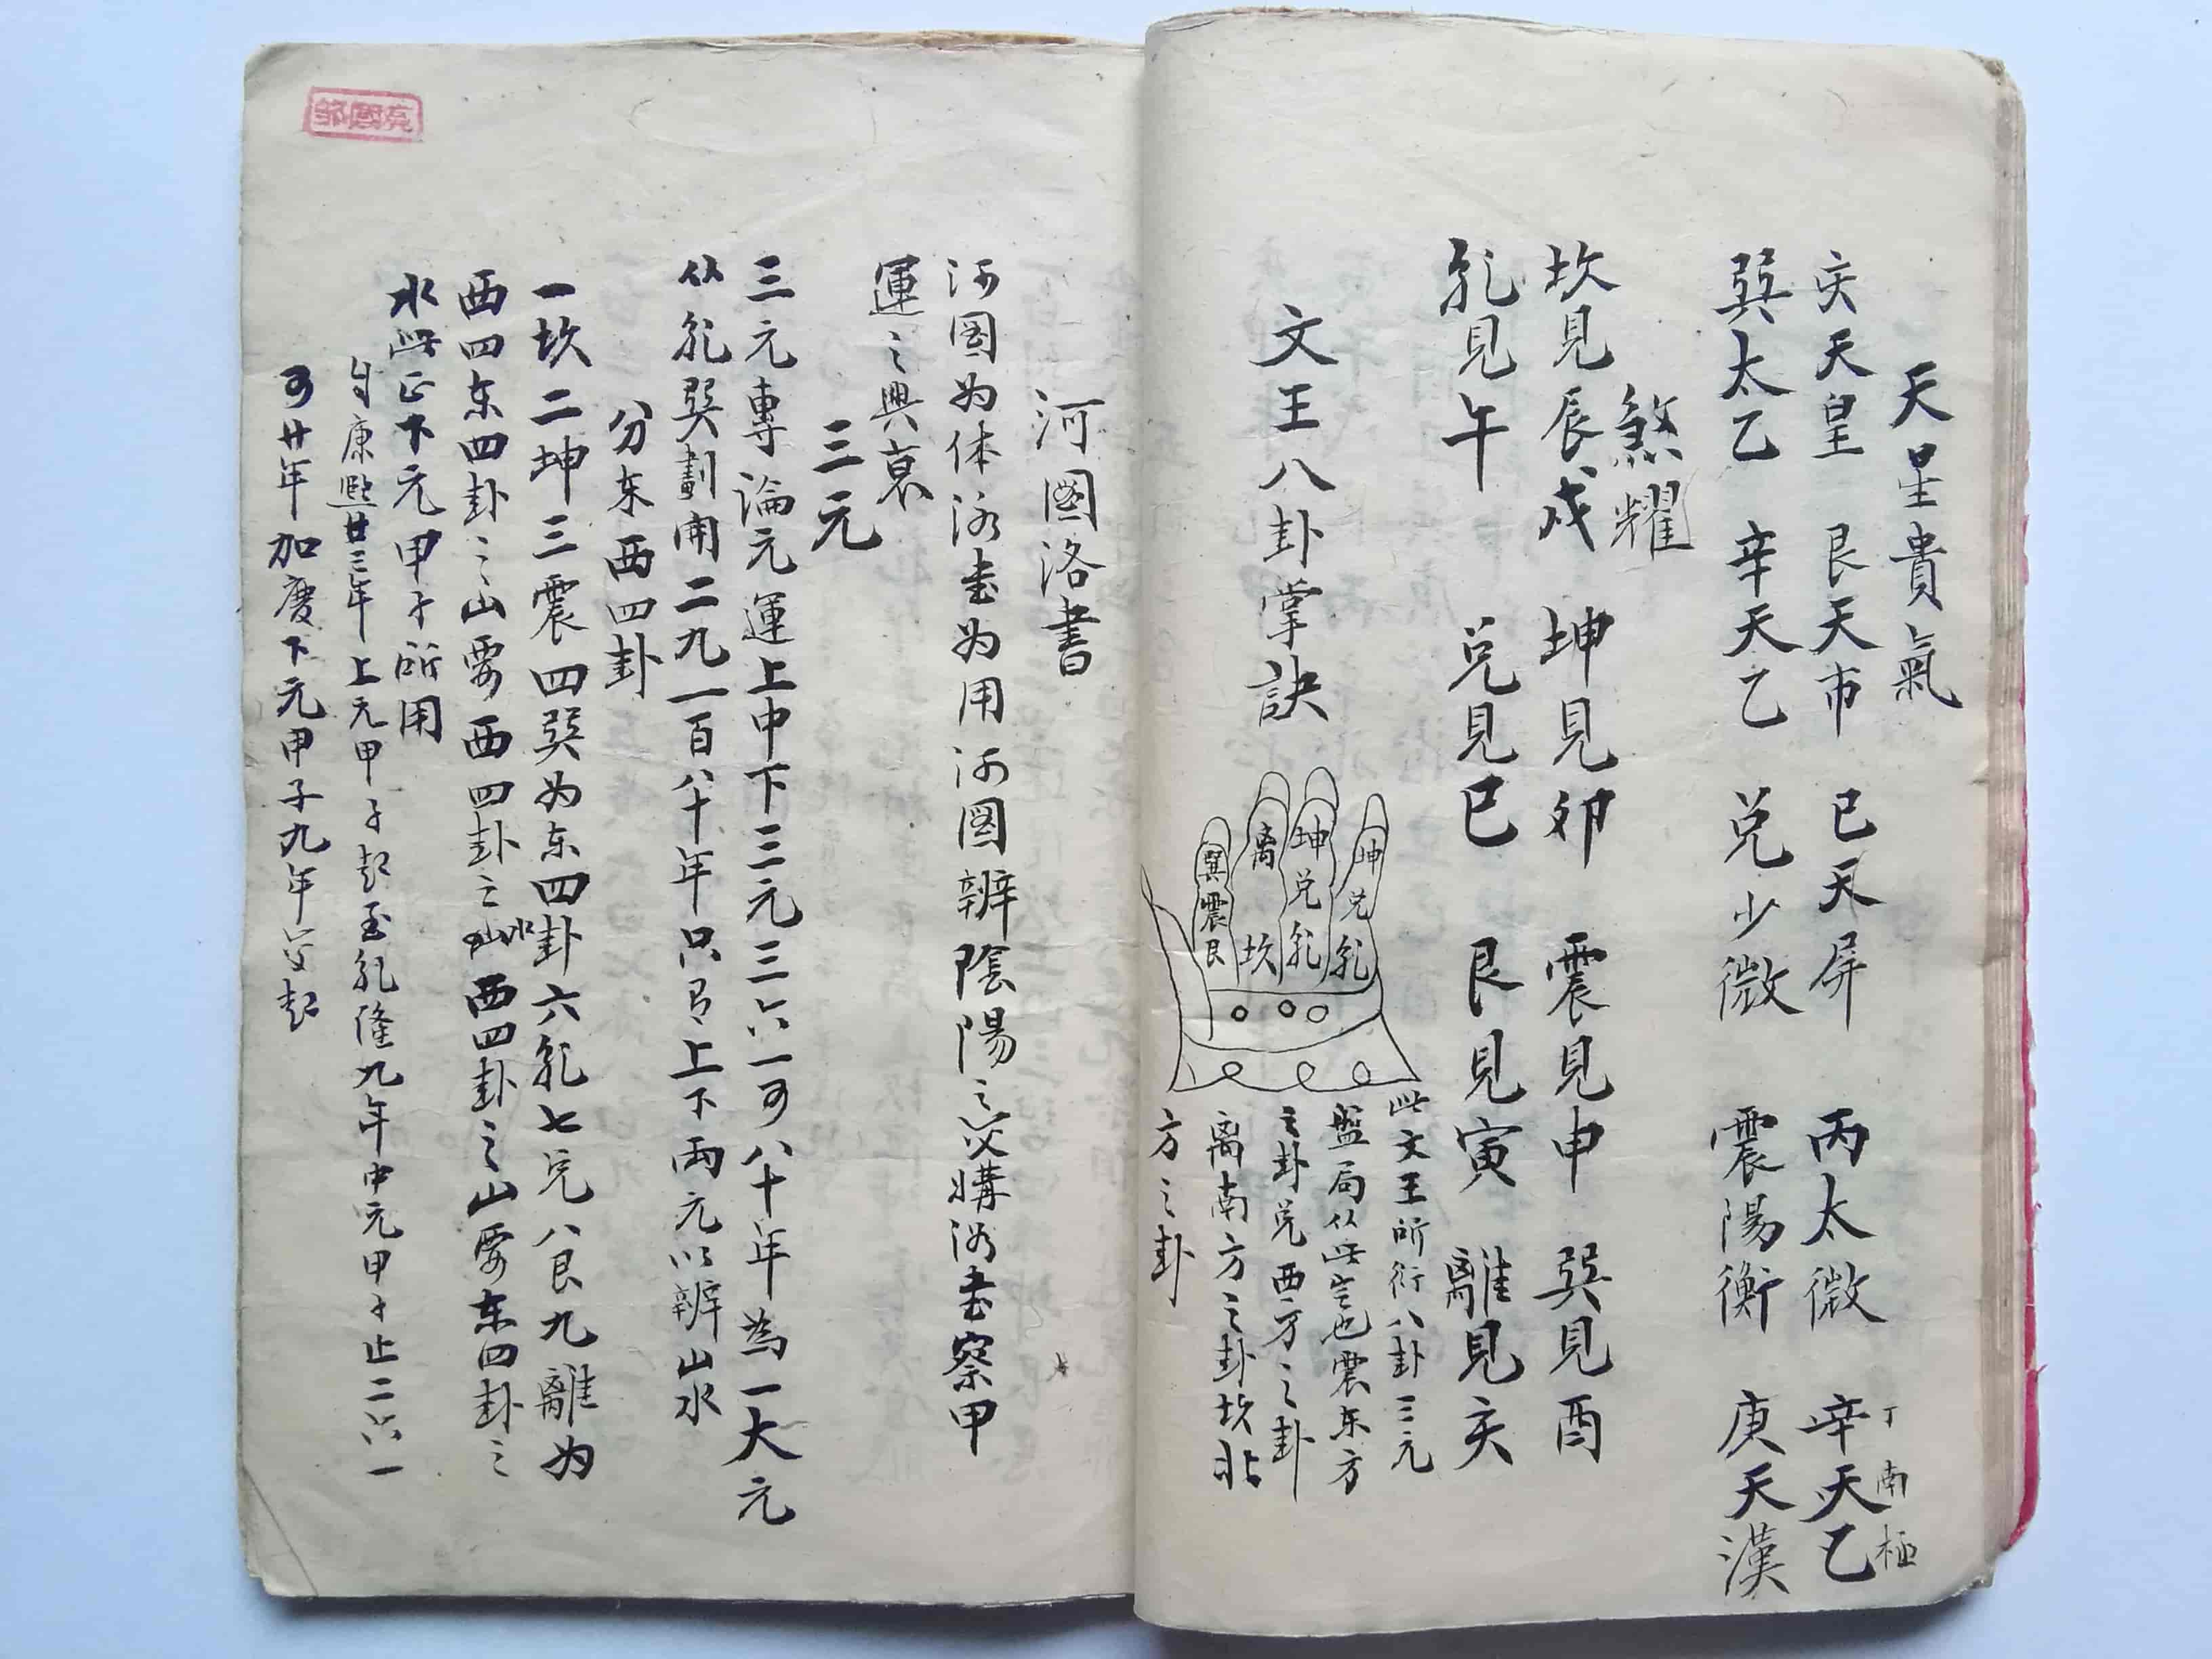 天星貴氣
亥天皇 艮天市 巳天屏 丙太微 辛天乙
丁南極
巽太乙 辛天乙 兑少微 震陽衡 庚天漢
煞耀
坎見辰戌 坤見卯 震見申 巽見酉
乾見午 兑見巳 艮見寅 離見亥
文王八卦掌訣
坤兑乾
坤兑乾
离坎
巽震艮
此文王所衍八卦三元
盤局从此定也震东方
之卦兑西方之卦
离南方之卦坎北
方之卦
河圖洛書
河图为体洛書为用河图辨陰陽之交媾洛書察甲
運之興衰
三元
三元專論元運上中下三元三六一百八十年為一大元
从乾巽劃開二九一百八十年只有上下两元以辨山水
分东西四卦
一坎二坤三震四巽为东四卦六乾七兑八艮九離为
西四东四卦之山要西四卦之水西四卦之山要东四卦之
水此正下元甲子所用
自康熙廿三年上元甲子起至乾隆九年中元甲子止二六一
百廿年加慶下元甲子九年交起
鄒國亮